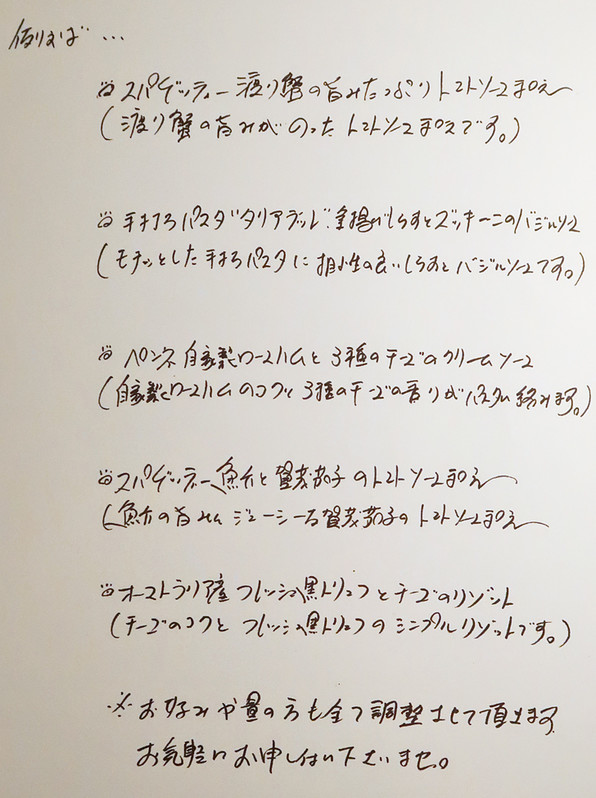 例えば…
スパゲッティー 渡り蟹の旨みたっぷりトマトソース和え
(渡り蟹の旨みがのったトマトソース和えです。)
手打ちパスタ"タリアテッレ" 釜揚げしらすとズッキーニのバジルソース
(モチッとした手打ちパスタに相性の良いしらすとバジルソースです。)
ペンネ 自家製ロースハムと3種のチーズのクリームソース
(自家製ロースハムのコクと3種のチーズの香りがパスタに絡みます。)
スパゲッティー 魚介と賀茂茄子のトマトソース和え
(魚介の旨みとジューシーな賀茂茄子のトマトソース和え
オーストラリア産フレッシュ黒トリュフとチーズのリゾット
(チーズのコクとフレッシュ黒トリュフのシンプルリゾットです。)
※お好みや量の方も全て調整させて頂きます
お気軽にお申し付け下さいませ。